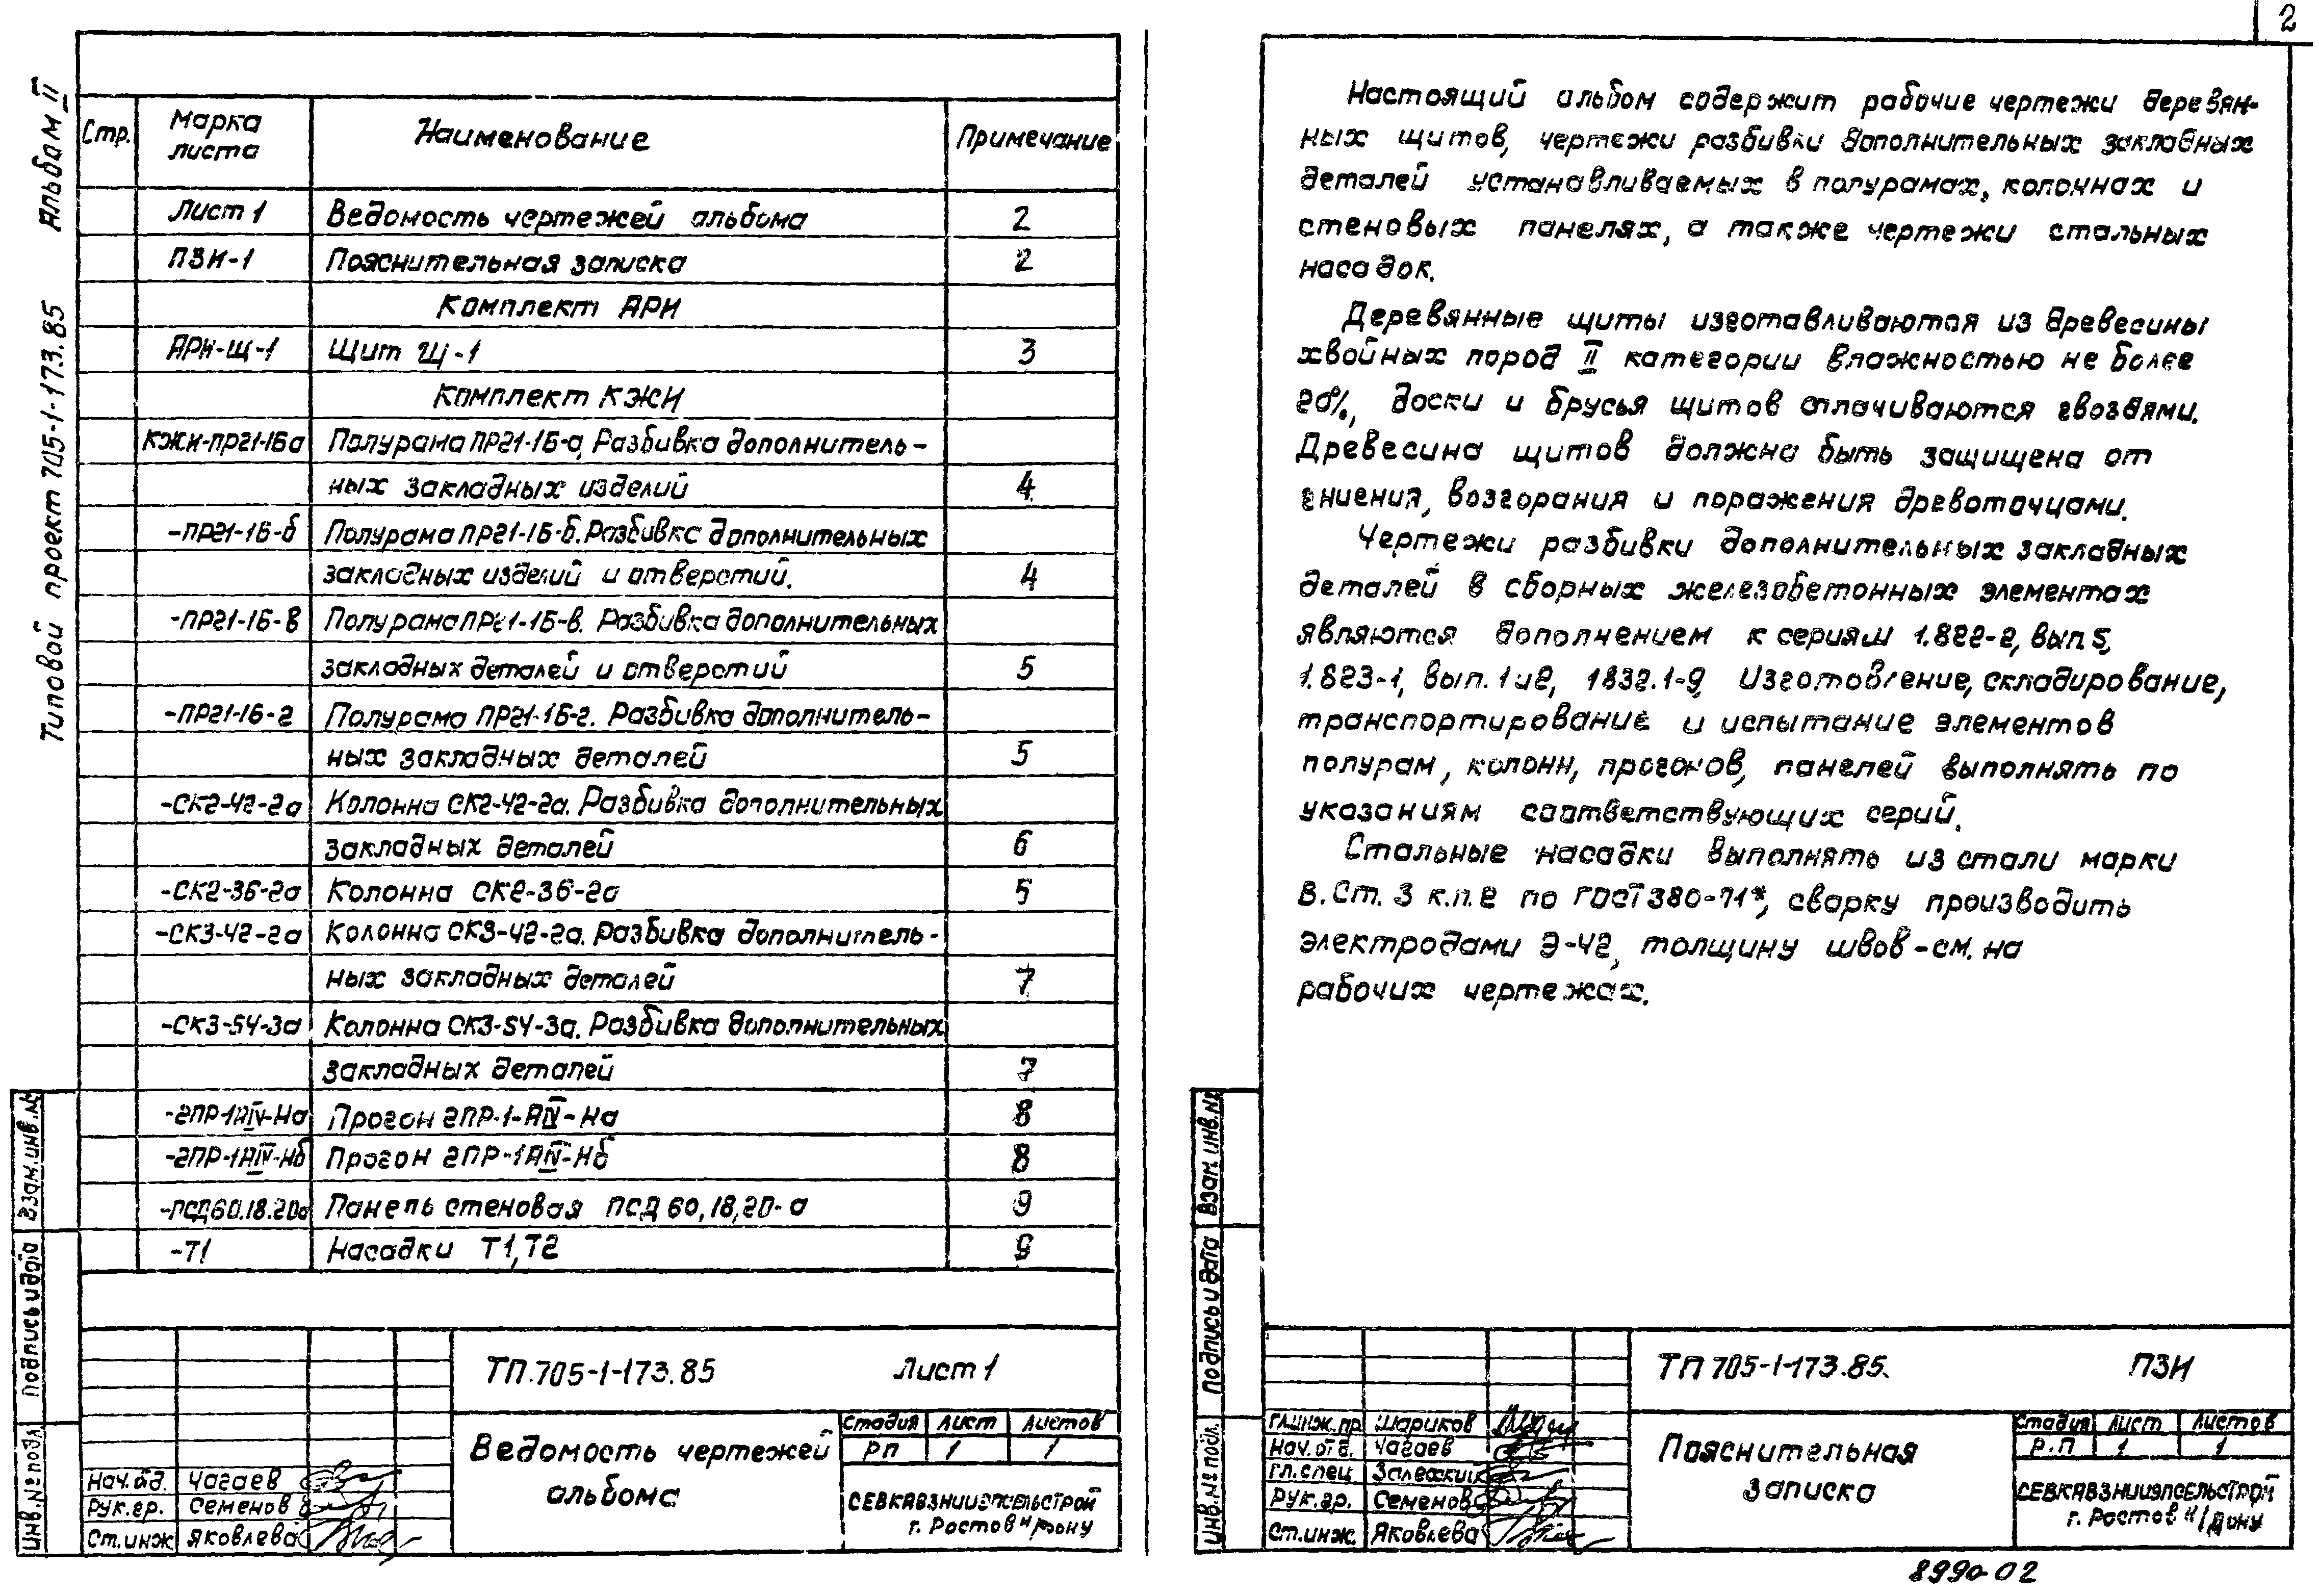 2
Альбом II
Типовой проект 705-1-173.85
Стр. Марка листа Наименование Примечание
Лист 1 Ведомость чертежей альбома 2
ПЗИ-1 Пояснительная записка 2
Комплект АРИ
АРИ-Щ-1 Щит Щ-1 3
Комплект КЖИ
КЖИ-ПР21-1Б а Полурама ПР21-1Б-а, Разбивка дополнитель-
ных закладных изделий 4
-ПР21-1Б-б Полурама ПР21-1Б-б. Разбивка дополнительных
закладных изделий и отверстий. 4
-ПР21-1Б-в Полурама ПР21-1Б-в. Разбивка дополнительных
закладных деталей и отверстий 5
-ПР21-1Б-г Полурама ПР21-1Б-г. Разбивка дополнитель-
ных закладных деталей 5
-СК2-42-2а Колонна СК2-42-2а. Разбивка дополнительных
закладных деталей 6
-СК2-36-2а Колонна СК2-36-2а 5
-СК3-42-2а Колонна СК3-42-2а. Разбивка дополнитель-
ных закладных деталей 7
-СК3-54-3а Колонна СК3-54-3а. Разбивка дополнительных
закладных деталей 7
-2ПР-1АIV-На Прогон 2ПР-1-АIV-На 8
-2ПР-1АIV-Нб Прогон 2ПР-1АIV-Нб 8
-ПСД60.18.20а Панель стеновая ПСД 60,18,20-а 9
-Т1 Насадки Т1,Т2 9
Взам.инв.№
Подпись и дата
Инв.№ подл.
ТП.705-1-173.85 Лист 1
Ведомость чертежей
альбома
Стадия Лист Листов
РП 1 1
Нач.од. Чагаев
Рук.гр. Семенов
Ст.инж Яковлева
СЕВКАВЗНИИЭПСЕЛЬСТРОЙ
г. Ростов н/Дону
Настоящий альбом содержит рабочие чертежи деревян-
ных щитов, чертежи разбивки дополнительных закладных
деталей устанавливаемых в полурамах, колоннах и
стеновых панелях, а также чертежи стальных
насадок.
Деревянные щиты изготавливаются из древесины
хвойных пород II категории влажностью не более
20%, доски и брусья щитов сплачиваются гвоздями.
Древесина щитов должна быть защищена от
гниения, возгорания и поражения древоточцами.
Чертежи разбивки дополнительных закладных
деталей в сборных железобетонных элементах
являются дополнением к сериям 1.822-2, вып 5,
1.823-1, вып. 1 и 2, 1832.1-9, Изготовление, складирование,
транспортирование и испытание элементов
полурам, колонн, прогонов, панелей выполнять по
указаниям соответствующих серий.
Стальные насадки выполнять из стали марки
В.Ст. 3 к.п. 2 по ГОСТ 380-71*, сварку производить
электродами Э-42, толщину швов-см. на
рабочих чертежах.
Взам инв.№
Подпись и дата
Инв.№ подл.
ТП 705-1-173.85. ПЗИ
Пояснительная
записка
Стадия Лист Листов
Р.П 1 1
Гл.инж.пр Шариков
Нач.отд. Чагаев
Гл.спец Залежкий
Рук.гр. Семенов
Ст.инж. Яковлева
СЕВКАВЗНИИЭПСЕЛЬСТРОЙ
г. Ростов н/Дону
8990-02